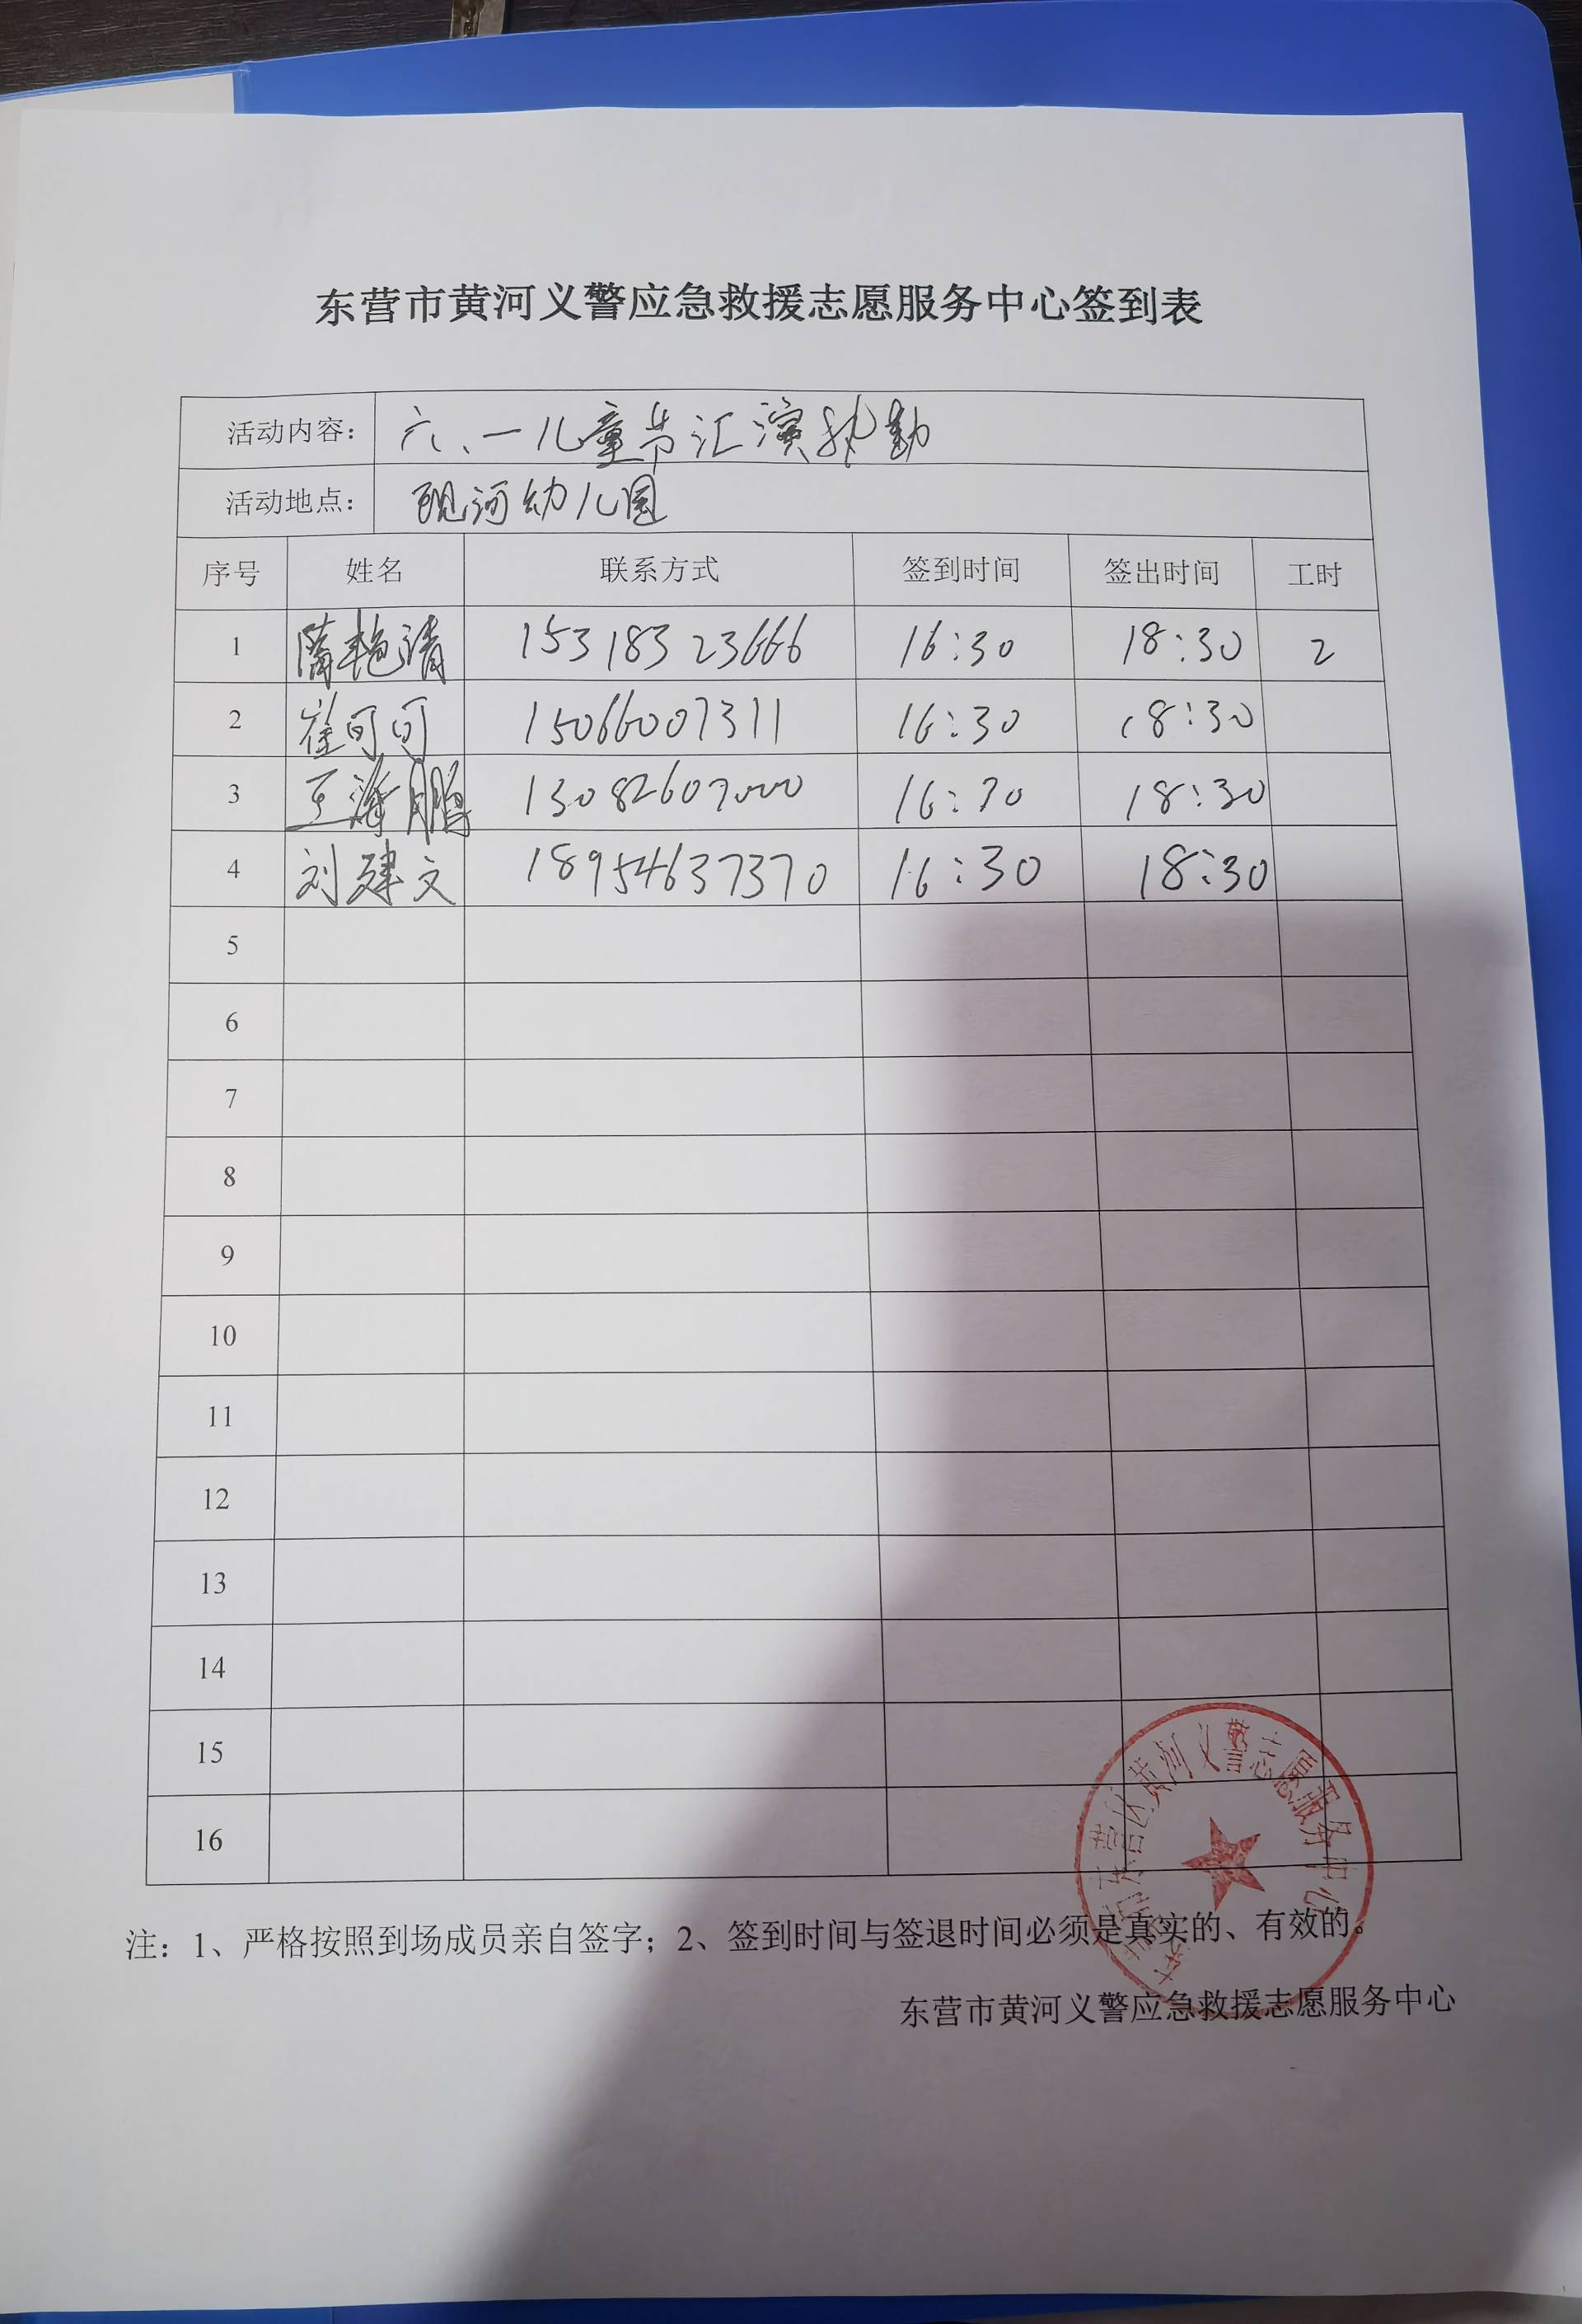 东营市黄河义警应急救援志愿服务中心签到表
活动内容： 六、一儿童节汇演执勤
活动地点： 砚河幼儿园
序号 姓名 联系方式 签到时间 签出时间 工时
1 隋艳清 15318323666 16:30 18:30 2
2 崔可可 15066007311 16:30 18:30
3 王海鹏 13082607000 16:30 18:30
4 刘建文 18954637370 16:30 18:30
5
6
7
8
9
10
11
12
13
14
15
16
东营市东营区黄河义警志愿服务中心
注：1、严格按照到场成员亲自签字；2、签到时间与签退时间必须是真实的、有效的。
东营市黄河义警应急救援志愿服务中心